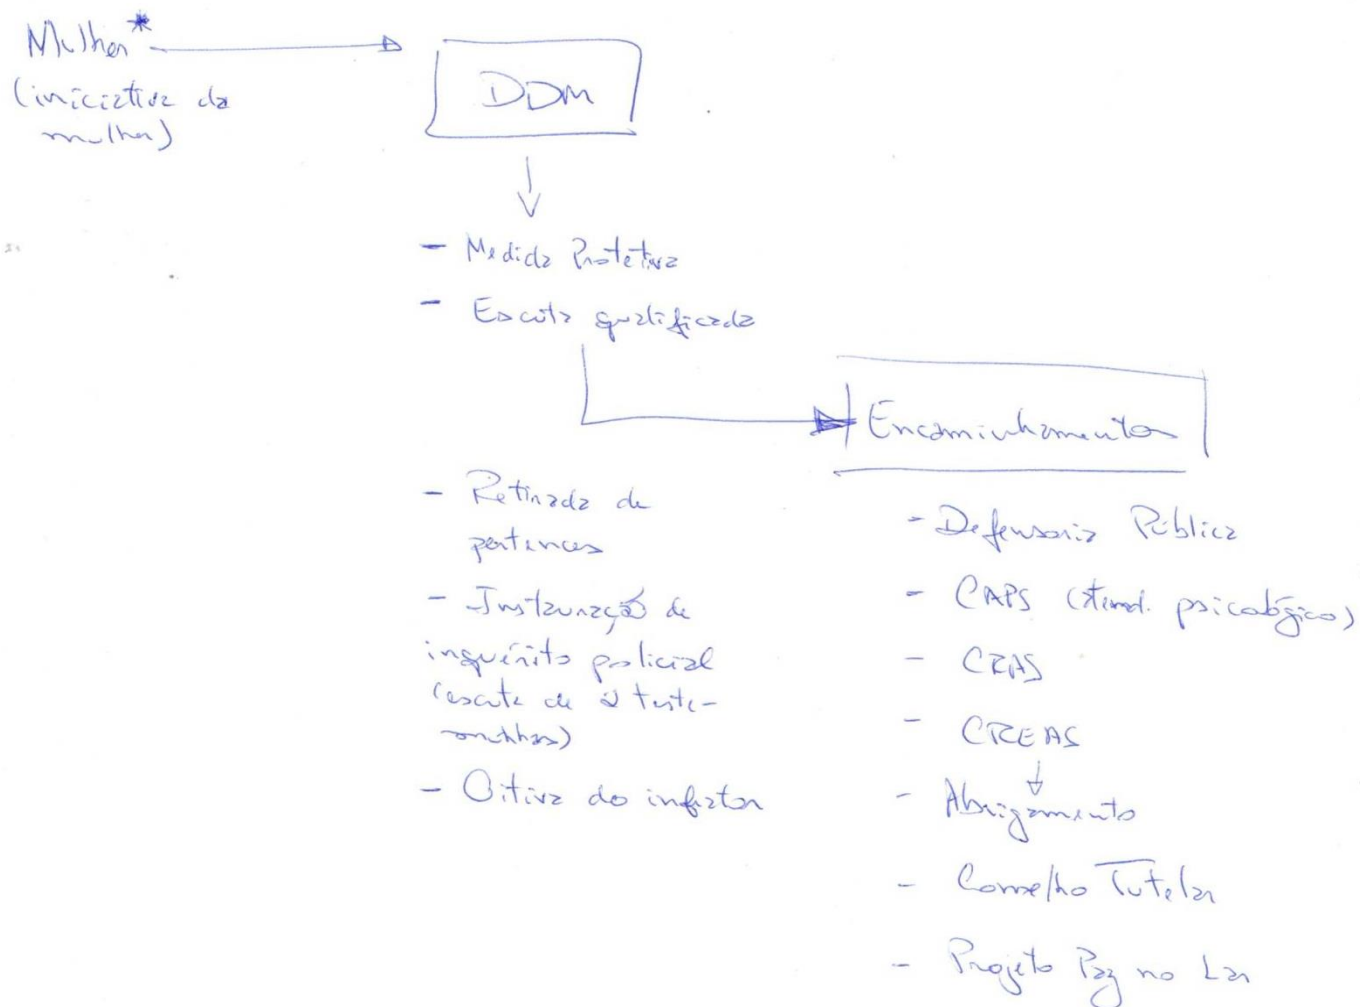 Mulher*
(iniciativa da
mulher)
DDM
- Medida Protetiva
- Escuta qualificada
Encaminhamentos
- Retirada de
pertences
- Instauração de
inquérito policial
(escuta de 2 teste-
munhas)
- Oitiva do infrator
- Defensoria Pública
- CAPS (atend. psicológico)
- CRAS
- CREAS
- Abrigamento
- Conselho Tutelar
- Projeto Paz no Lar